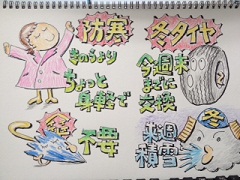 防寒
きのうより
ちょっと
身軽で
冬タイヤ
今週末
までに
交換
傘
不要
冬
来週
積雪